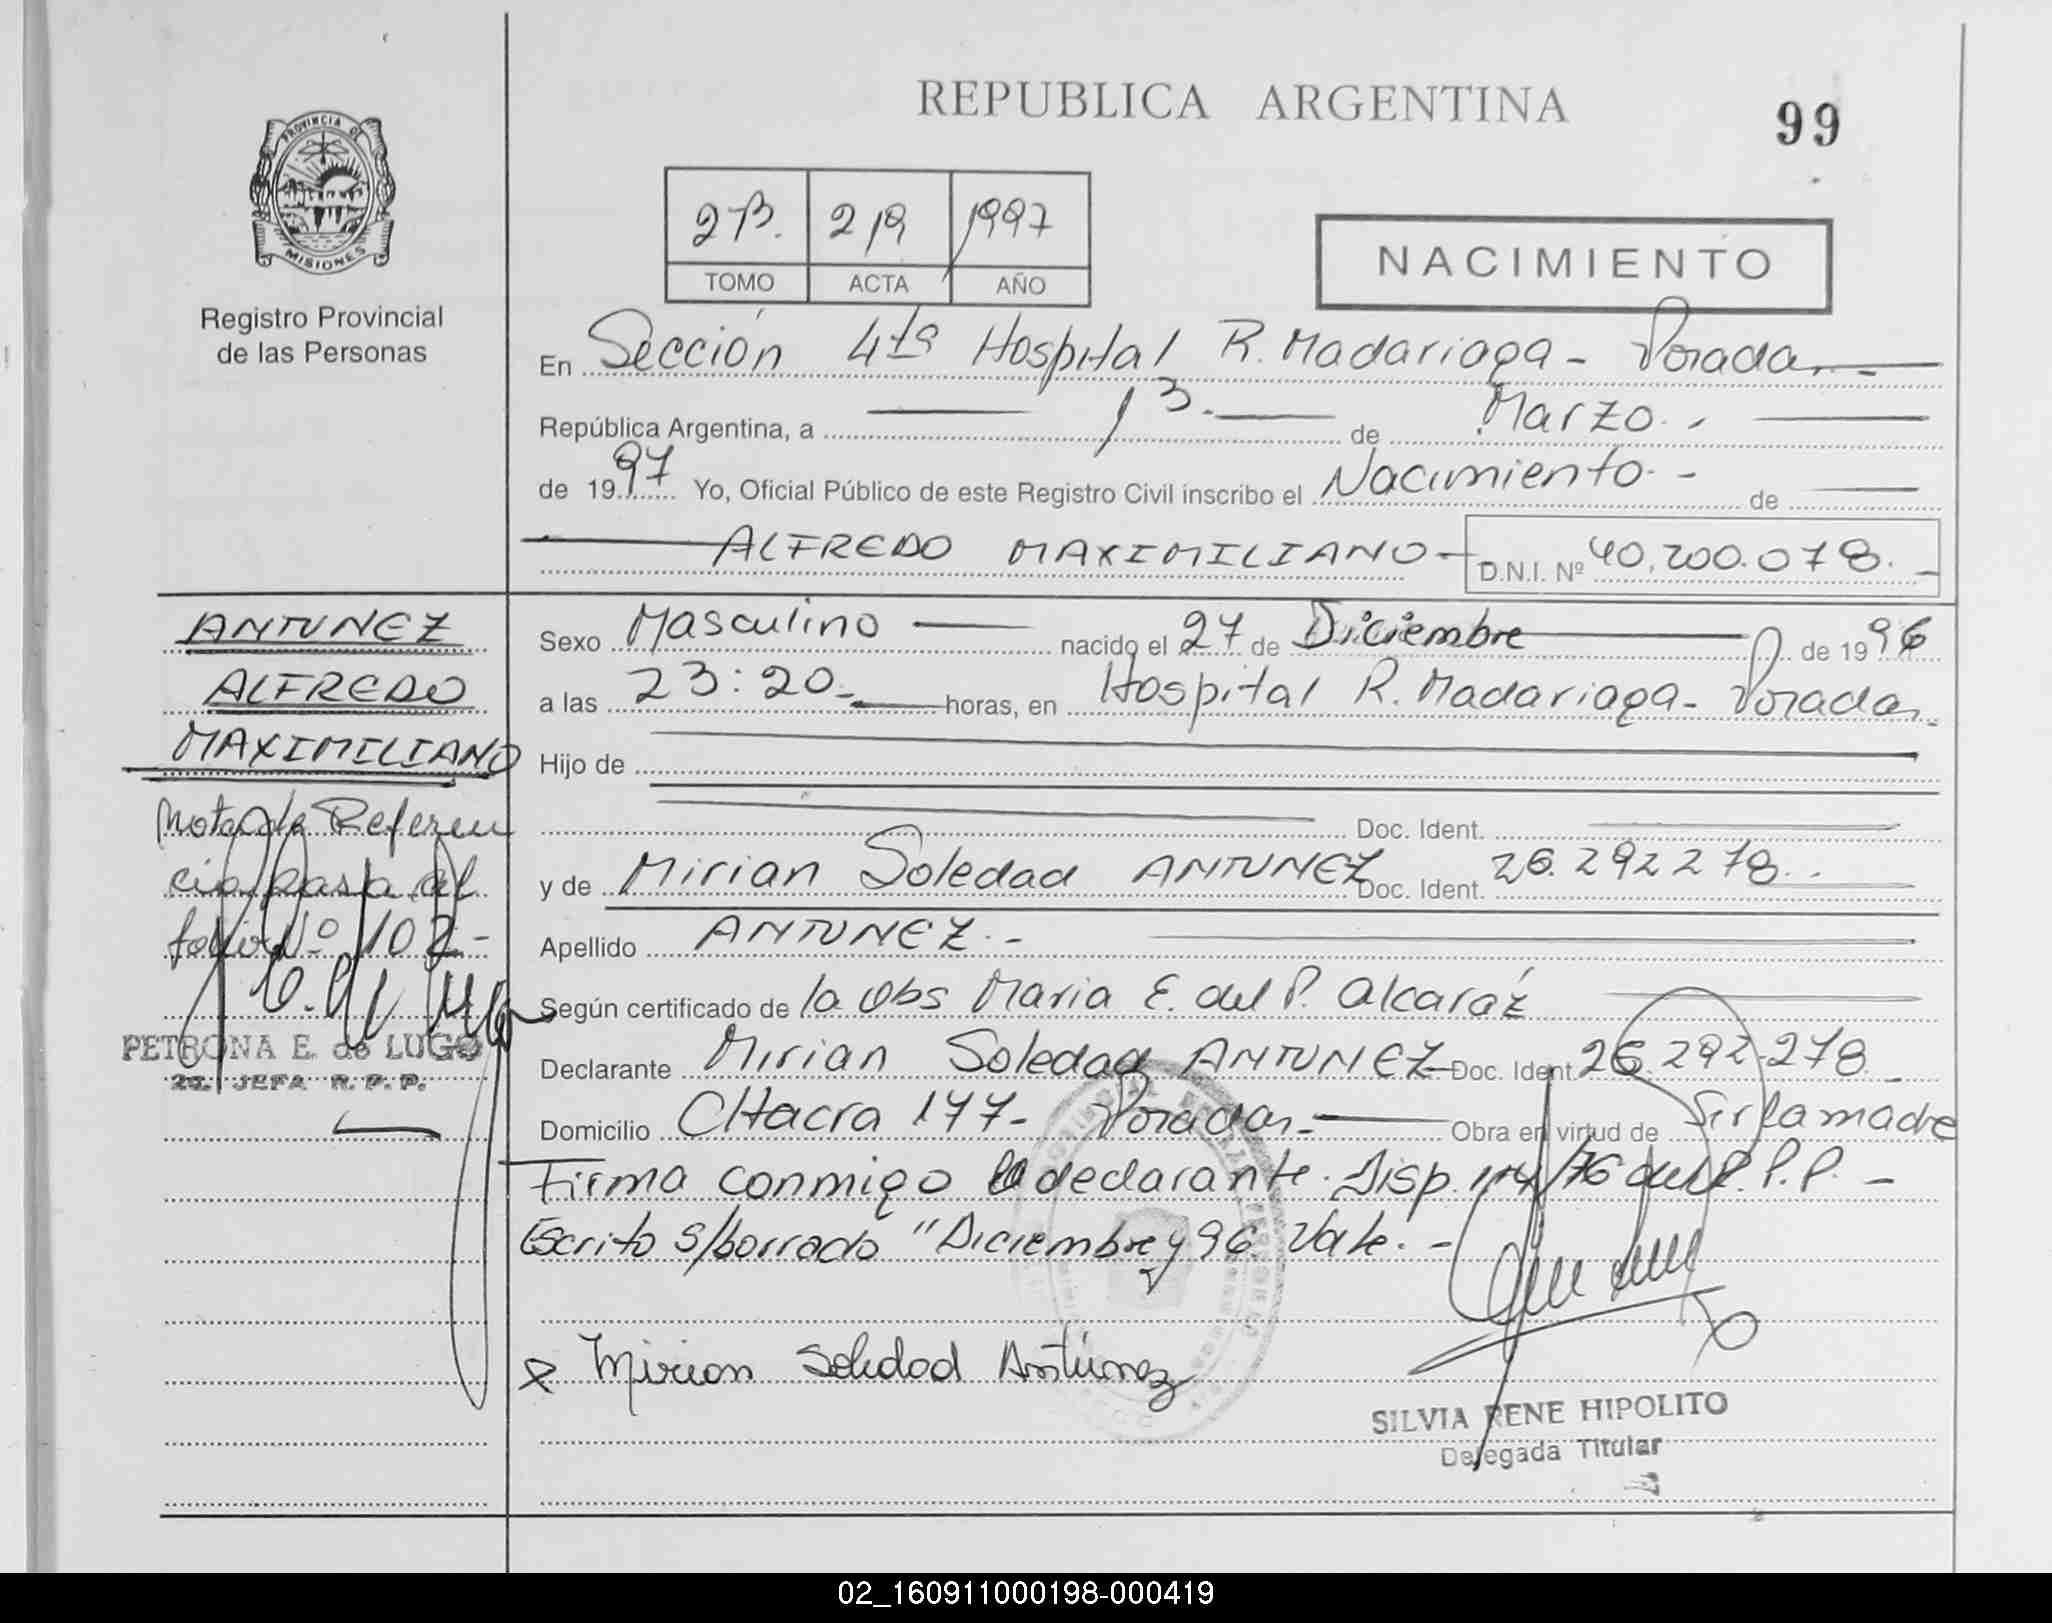 REPUBLICA ARGENTINA
99
PROVINCIA DE
MISIONES
Registro Provincial
de las Personas
2B. 219 1997
TOMO ACTA AÑO
NACIMIENTO
En Sección 4ta Hospital R. Madariaga - Posadas.-
República Argentina, a 13.- de Marzo.-
de 1997 Yo, Oficial Público de este Registro Civil inscribo el Nacimiento.- de
ALFREDO MAXIMILIANO - D.N.I. Nº 40.200.078.-
ANTUNEZ
ALFREDO
MAXIMILIANO
Nota de Referen
cia pasa al
folio Nº 102-
PETRONA E. de LUGO
2a. JEFA R. P. P.
Sexo Masculino nacido el 27 de Diciembre de 1996
a las 23:20.- horas, en Hospital R. Madariaga - Posadas.-
Hijo de
Doc. Ident.
y de Mirian Soledad ANTUNEZ Doc. Ident. 26.292278..
Apellido ANTUNEZ.-
Según certificado de la Obs Maria E. del P. Alcaráz
Declarante Mirian Soledad ANTUNEZ Doc. Ident. 26.292.278.-
Domicilio CHacra 177- Posadas.- Obra en virtud de Ser la madre
Firma conmigo la declarante. Disp. 114/76 del R.P.P. -
Escrito s/borrado "Diciembre y 96 Vale. -
x Mirian Soledad Antúnez
SILVIA RENE HIPOLITO
Delegada Titular
02_160911000198-000419